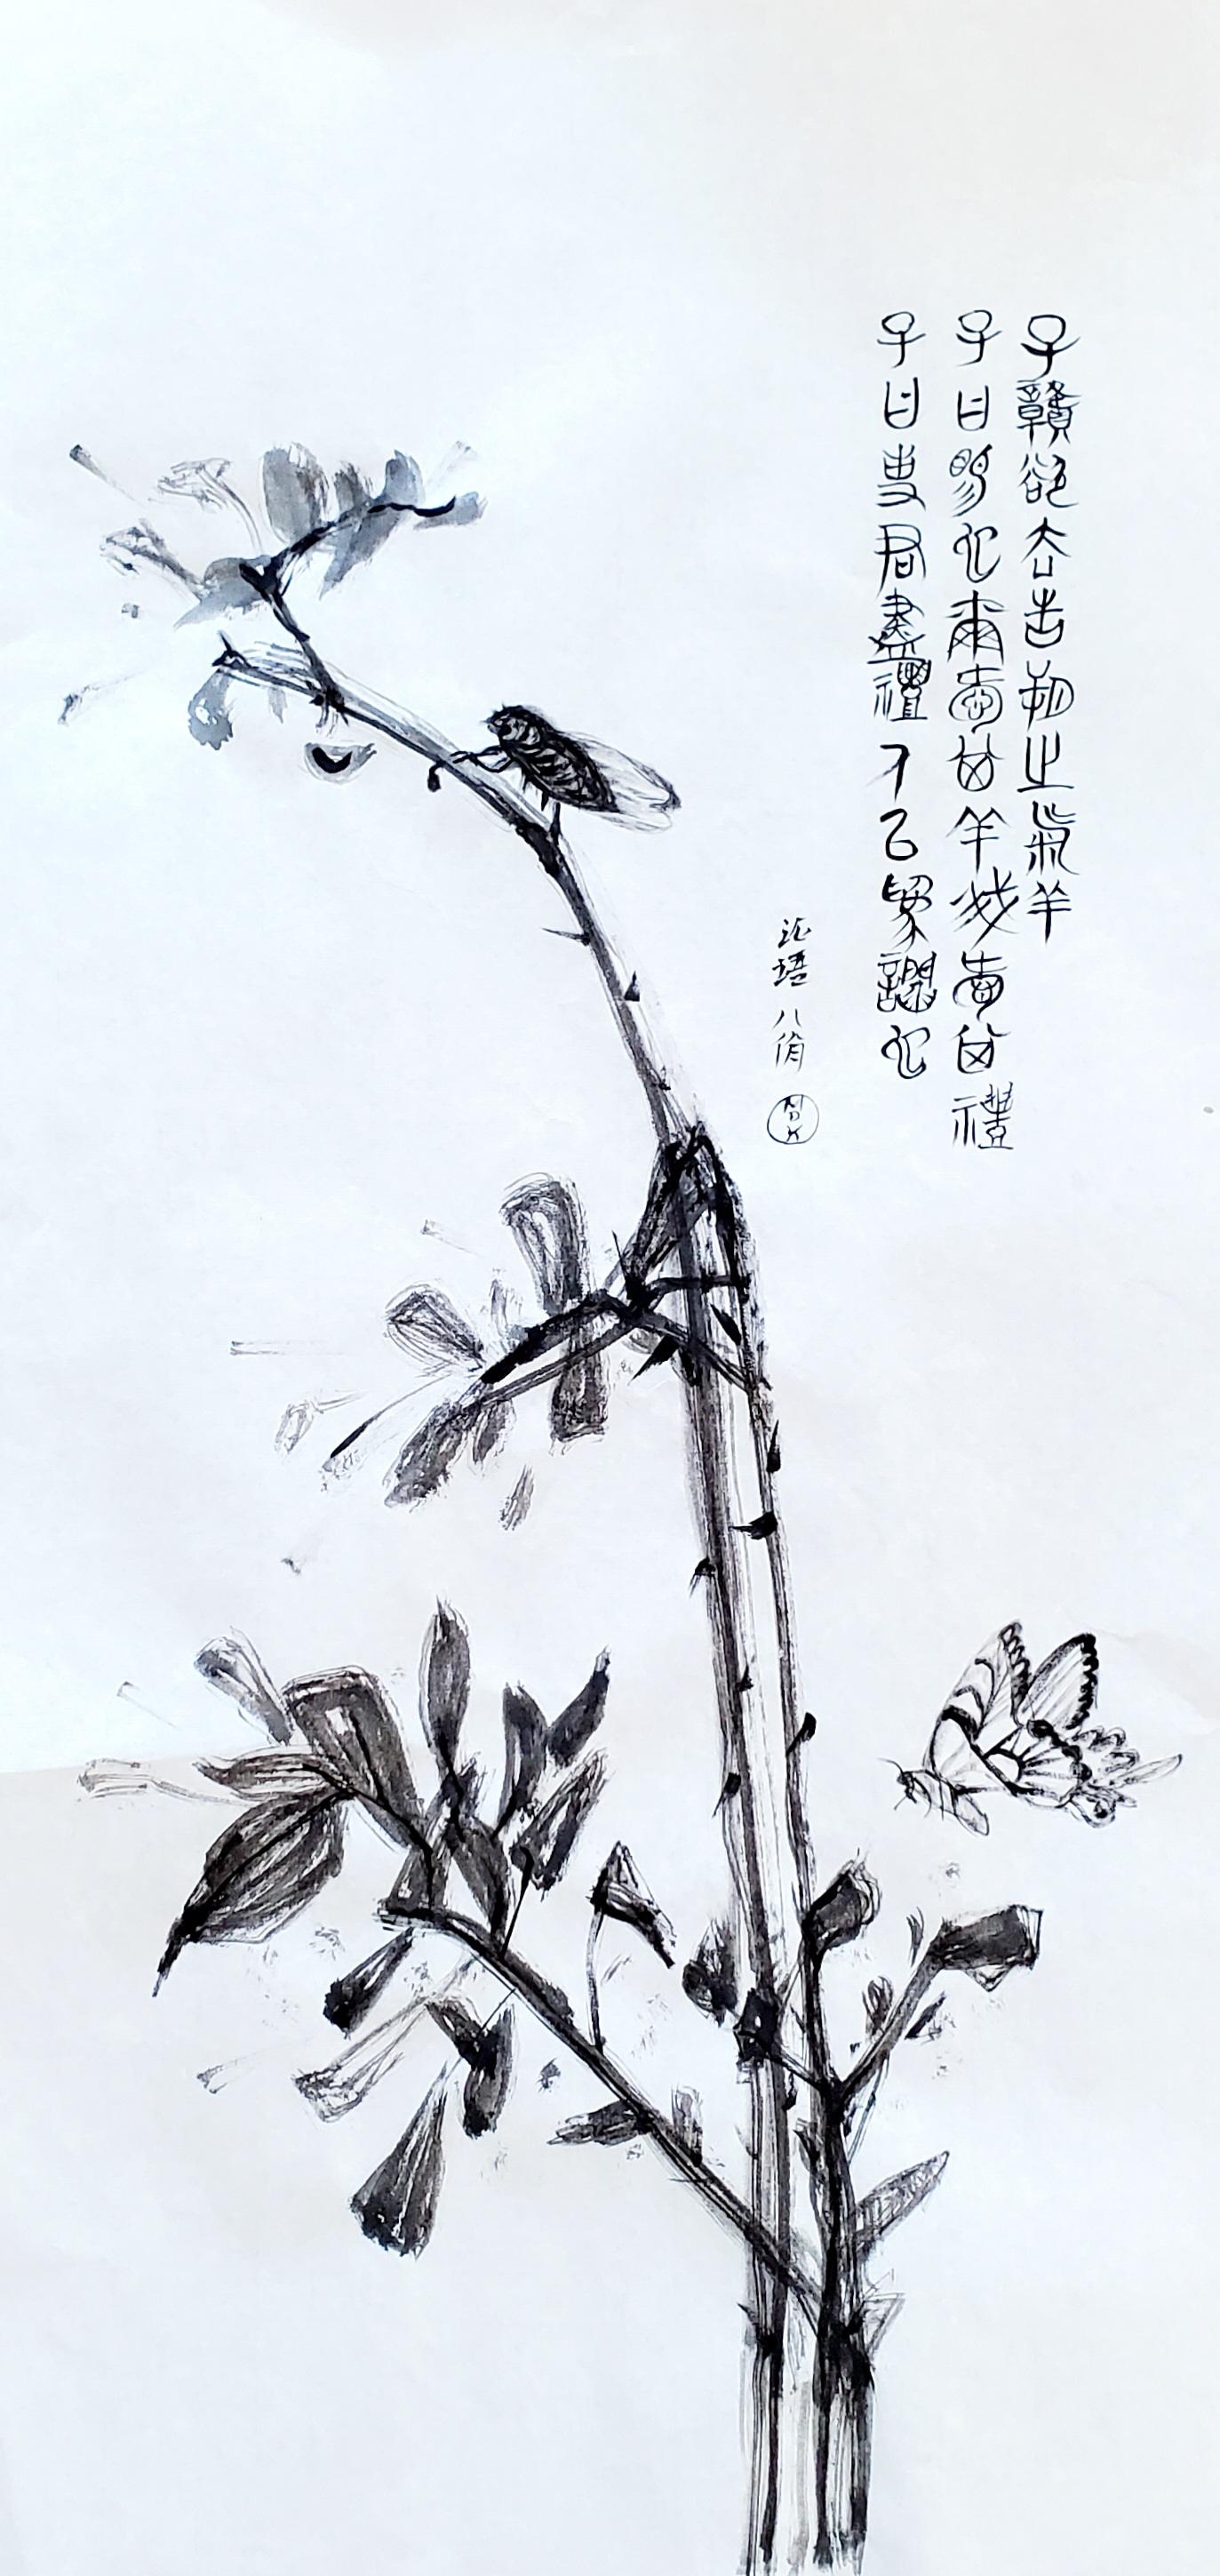 子贛欲去告朔之氣羊
子曰賜也爾愛其羊我愛其禮
子曰事君盡禮人以為讇也
論語 八佾